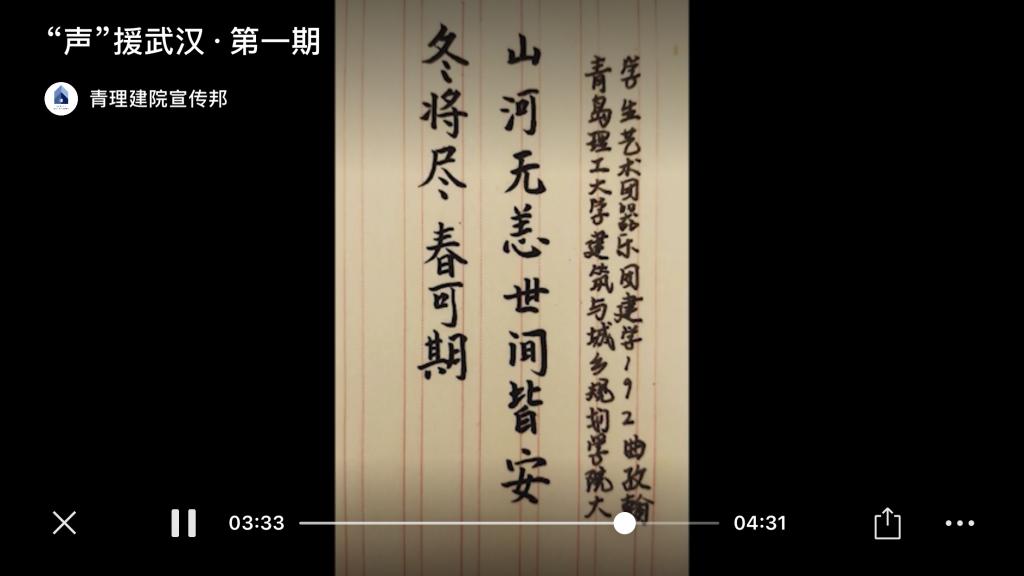 “声”援武汉 · 第一期
青理建院宣传邦
冬将尽春可期
山河无恙世间皆安
青岛理工大学建筑与城乡规划学院大
学生艺术团器乐团建学192
03:33
04:31